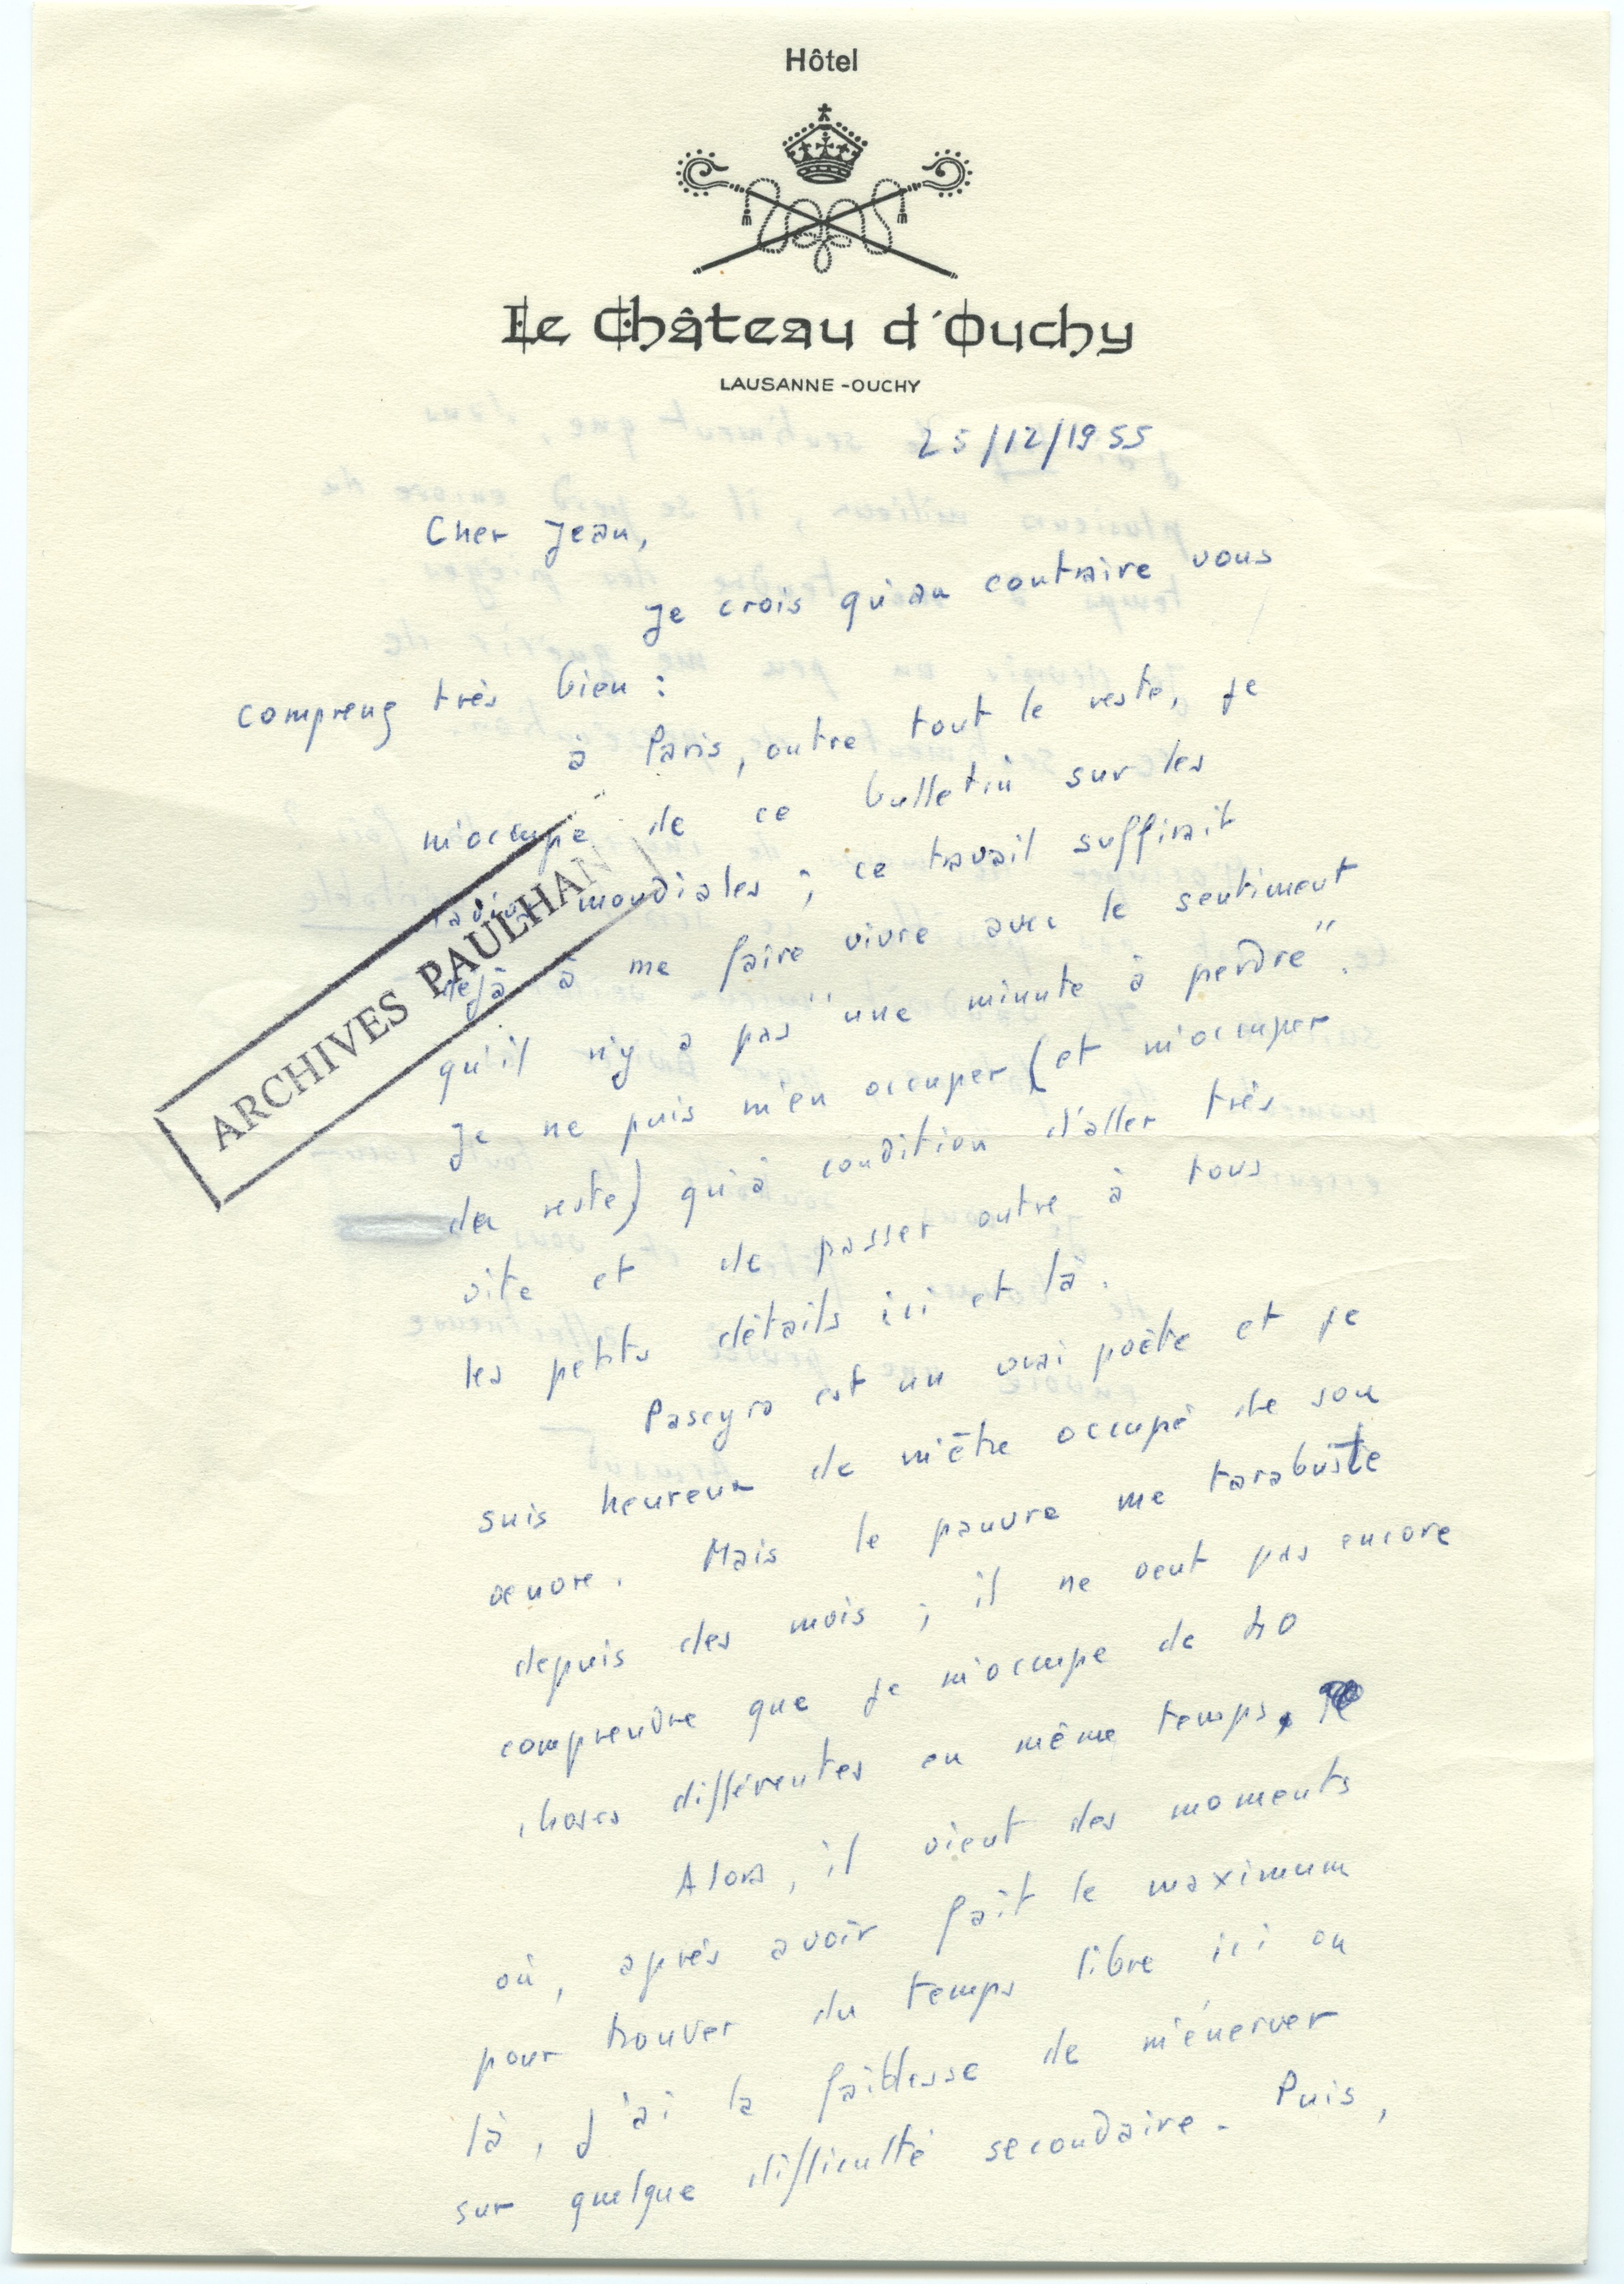 Hôtel
Le Château d'Ouchy
LAUSANNE-OUCHY
25/12/1955
Cher Jean,
Je crois qu'au contraire vous
comprenez très bien :
à Paris, outre tout le reste, je
m'occupe de ce bulletin sur les
radios mondiales ; ce travail suffirait
déjà à me faire vivre avec le sentiment
qu'il n'y a pas "une minute à perdre".
Je ne puis m'en occuper (et m'occuper
du reste) qu'à condition d'aller très
vite et de passer outre à tous
les petits détails ici et là.
Paseyro est un vrai poète et je
suis heureux de m'être occupé de son
œuvre. Mais le pauvre me tarabuste
depuis des mois ; il ne veut pas encore
comprendre que je m'occupe de 40
choses différentes en même temps.
Alors, il vient des moments
où, après avoir fait le maximum
pour trouver du temps libre ici ou
là, j'ai la faiblesse de m'énerver
sur quelque difficulté secondaire. Puis,
ARCHIVES PAULHAN